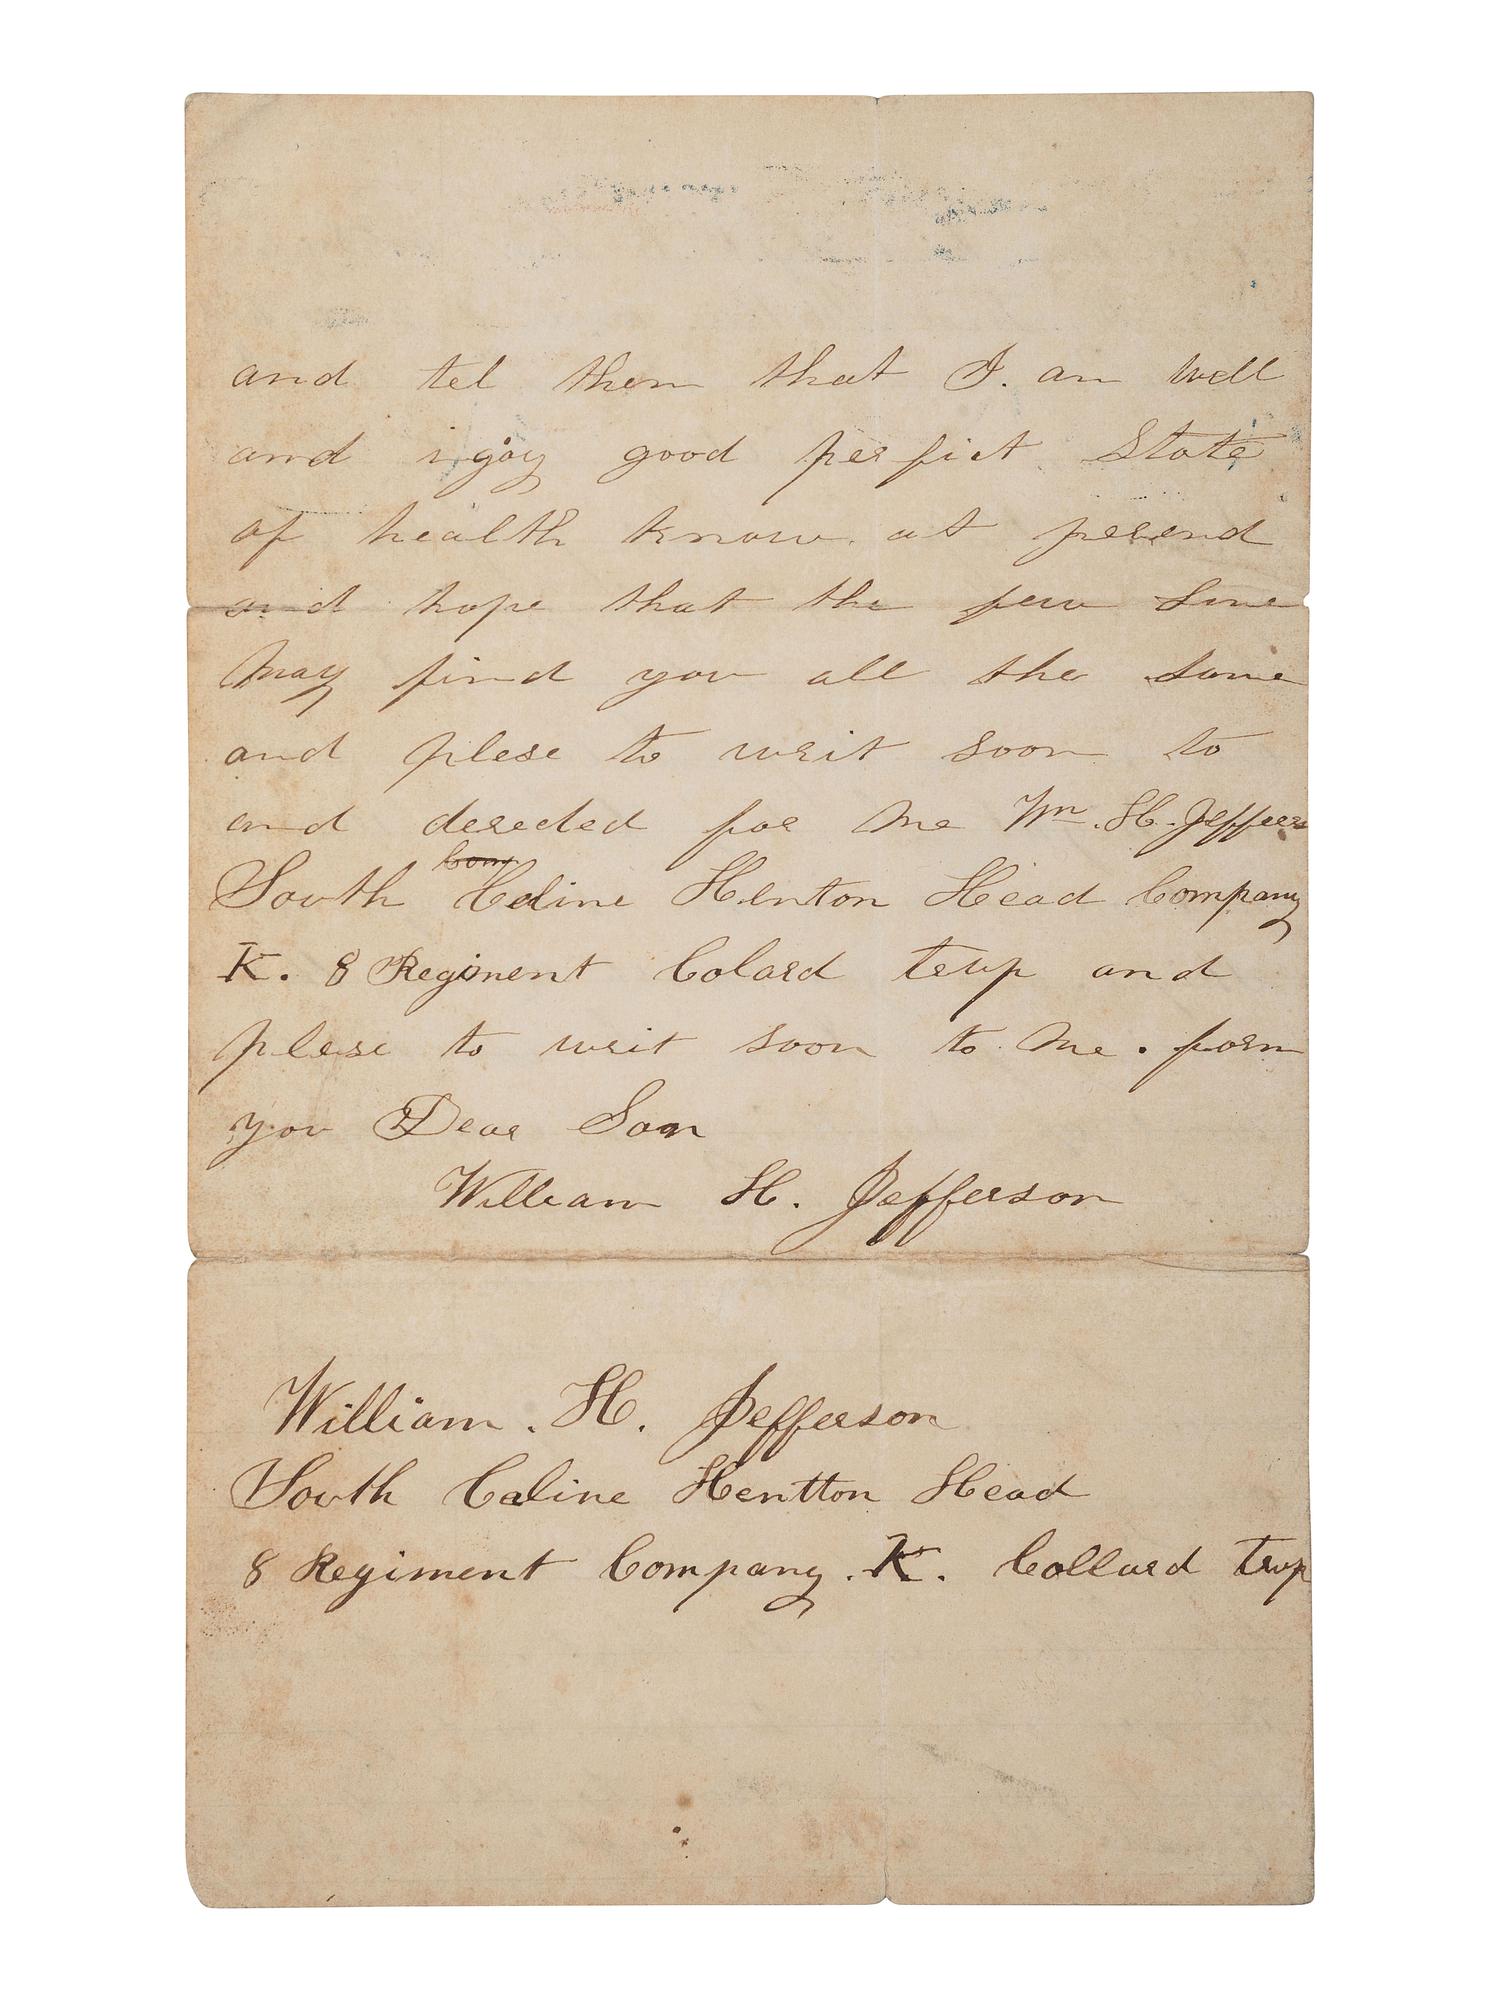 and tel them that I. am well
and igoy good perfict State
of health know. at presend
and hope that the few Line
May find you all the Same
and plese to writ soon to
and dereded for Me Wm. H. Jeffers
Com
South Caline Henton Head Company
K. 8 Regiment Colard trup and
plese to writ soon to. Me. form
you Dear Son
William H. Jefferson
William. H. Jefferson
South Caline Hentton Head
8 Regiment Company. K. Collard trup